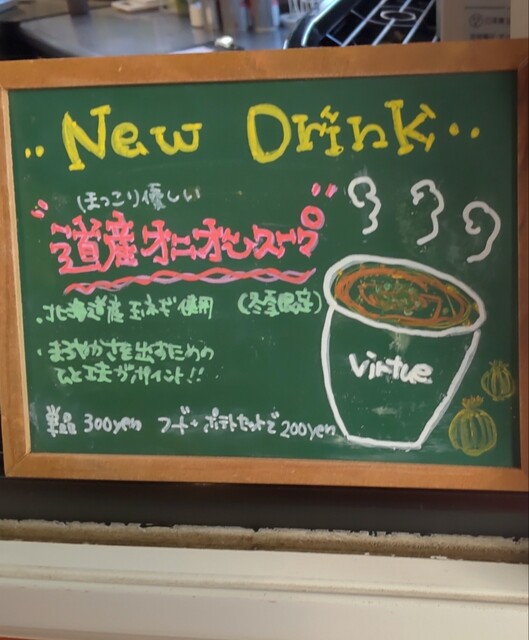 ‥New Drink‥
ほっこり優しい
"道産オニオンスープ"
・北海道産玉ネギ使用 (冬季限定)
・まろやかさを出すための
ひと工夫がポイント!!
Virtue
単品 300yen フード+ポテトセットで200yen